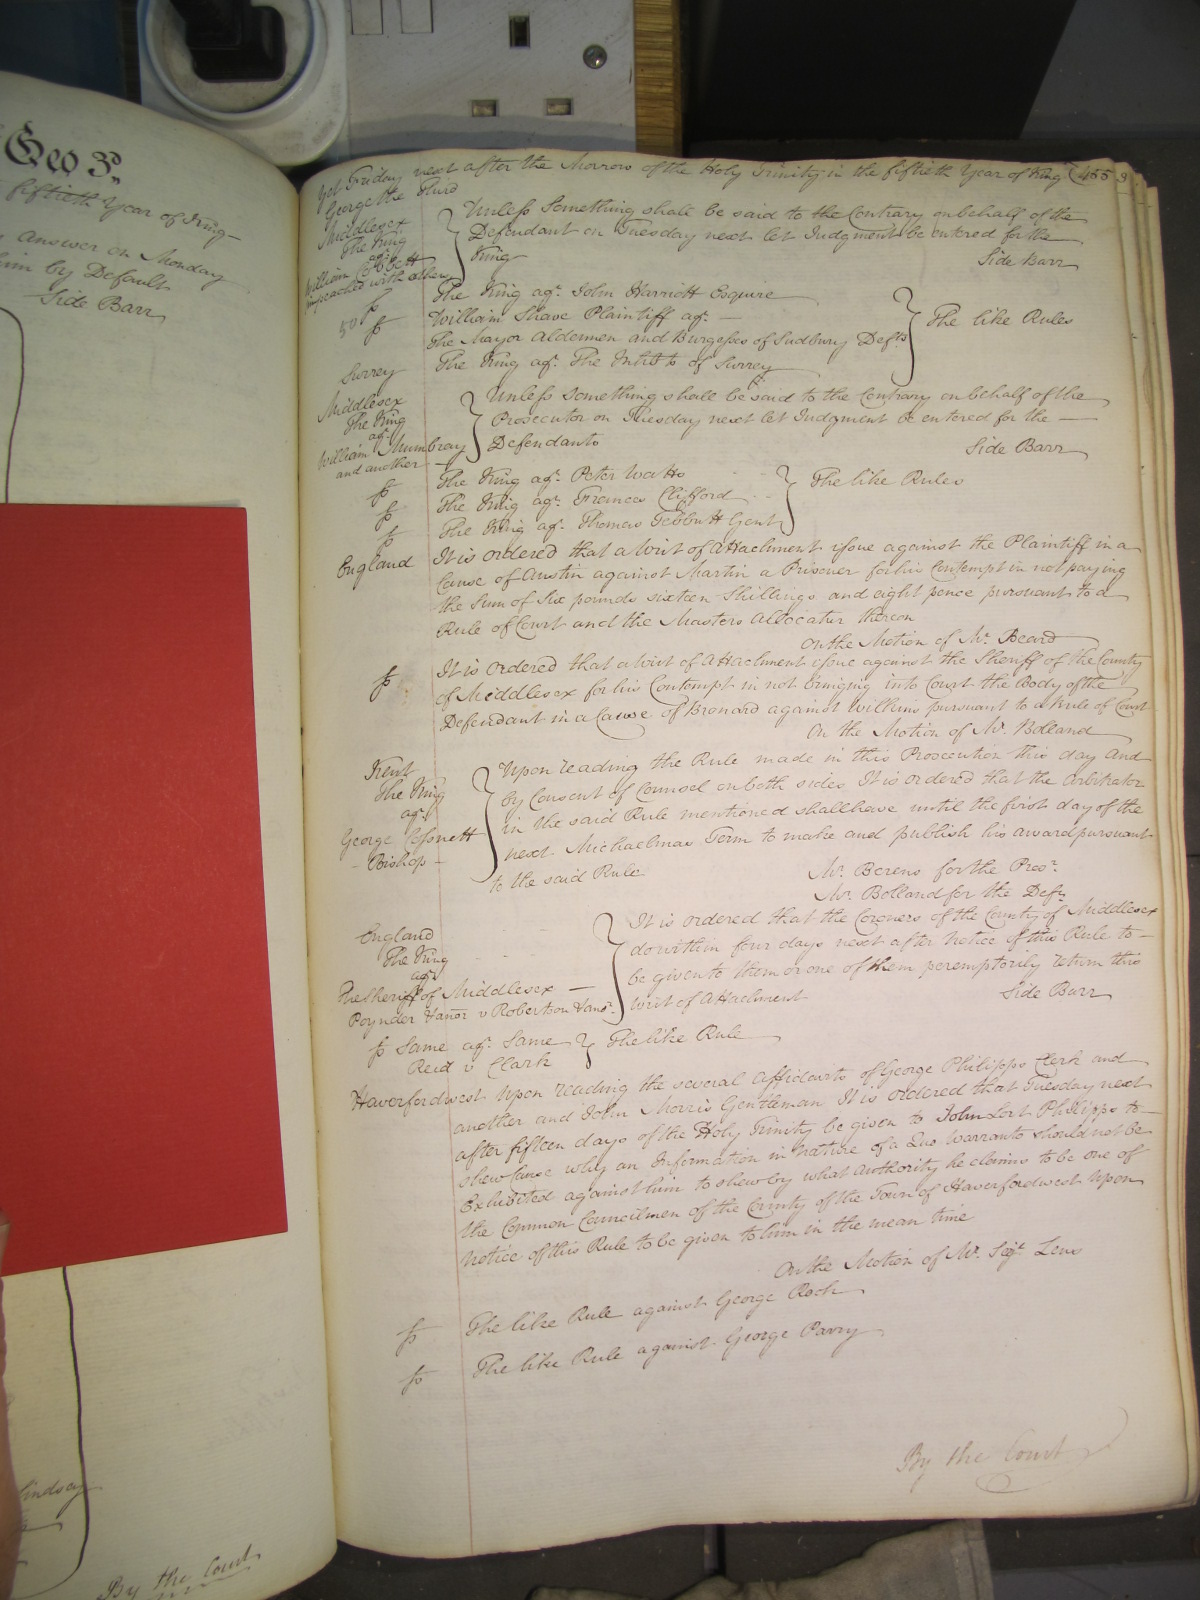 Geo 3d,
fiftieth Year of King
Answer on Monday
him by Default
Side Barr
Lindsay
By the Court
Yet Friday next after the Morrow of the Holy Trinity in the fiftieth Year of King 465
George the Third
Middlesex
The King
agt.
William Cobbett
impeached with others
Unless Something shall be said to the Contrary on behalf of the
Defendant on Tuesday next let Judgment be entered for the
King
Side Barr
The King agt. John Harriott Esquire
William Shave Plaintiff agt.
The Mayor Aldermen and Burgesses of Sudbury Defts
The like Rules
Surrey The King agt. The Inhts of Surrey
Middlesex
The King
agt.
William Mumbray
and another
Unless Something shall be said to the Contrary on behalf of the
Prosecutor on Tuesday next let Judgment be entered for the
Defendants
Side Barr
The King agt. Peter Watts
The King agt. Frances Clifford
The King agt. Thomas Tebbutt Gent
The like Rules
England It is ordered that a Writ of Attachment issue against the Plaintiff in a
Cause of Austin against Martin a Prisoner for his Contempt in not paying
the Sum of Six pounds sixteen Shillings and eight pence pursuant to a
Rule of Court and the Masters Allocatur thereon
On the Motion of Mr. Beard
It is ordered that a Writ of Attachment issue against the Sheriff of the County
of Middlesex for his Contempt in not bringing into Court the Body of the
Defendant in a Cause of against Wilkins pursuant to a Rule of Court
On the Motion of Mr. Bolland
Kent
The King
agt.
George
Bishop
Upon reading the Rule made in this Prosecution this day and
by Consent of Counsel on both sides It is ordered that the Arbitrator
in the said Rule mentioned shall have until the first day of the
next Michaelmas Term to make and publish his award pursuant
to the said Rule
Mr. Berens for the Prosr.
Mr. Bolland for the Deft.
England
The King
agt.
The Sheriff of Middlesex
Poynder v Robertson
It is ordered that the Coroners of the County of Middlesex
do within four days next after Notice of this Rule to
be given to them or one of them peremptorily return this
Writ of Attachment
Side Barr
Same agt. Same
Reid v Clark
The like Rule
Haverfordwest Upon reading the several Affidavits of George Philipps Clerk and
another and John Morris Gentleman It is ordered that Tuesday next
after fifteen days of the Holy Trinity be given to John Lort Philipps to
shew Cause why an Information in Nature of a Quo Warranto should not be
Exhibited against him to shew by what Authority he claims to be one of
the Common Councilmen of the County of the Town of Haverfordwest Upon
Notice of this Rule to be given to him in the mean time
On the Motion of Mr. Sejt. Lens
The like Rule against George Roch
The like Rule against George Parry
By the Court